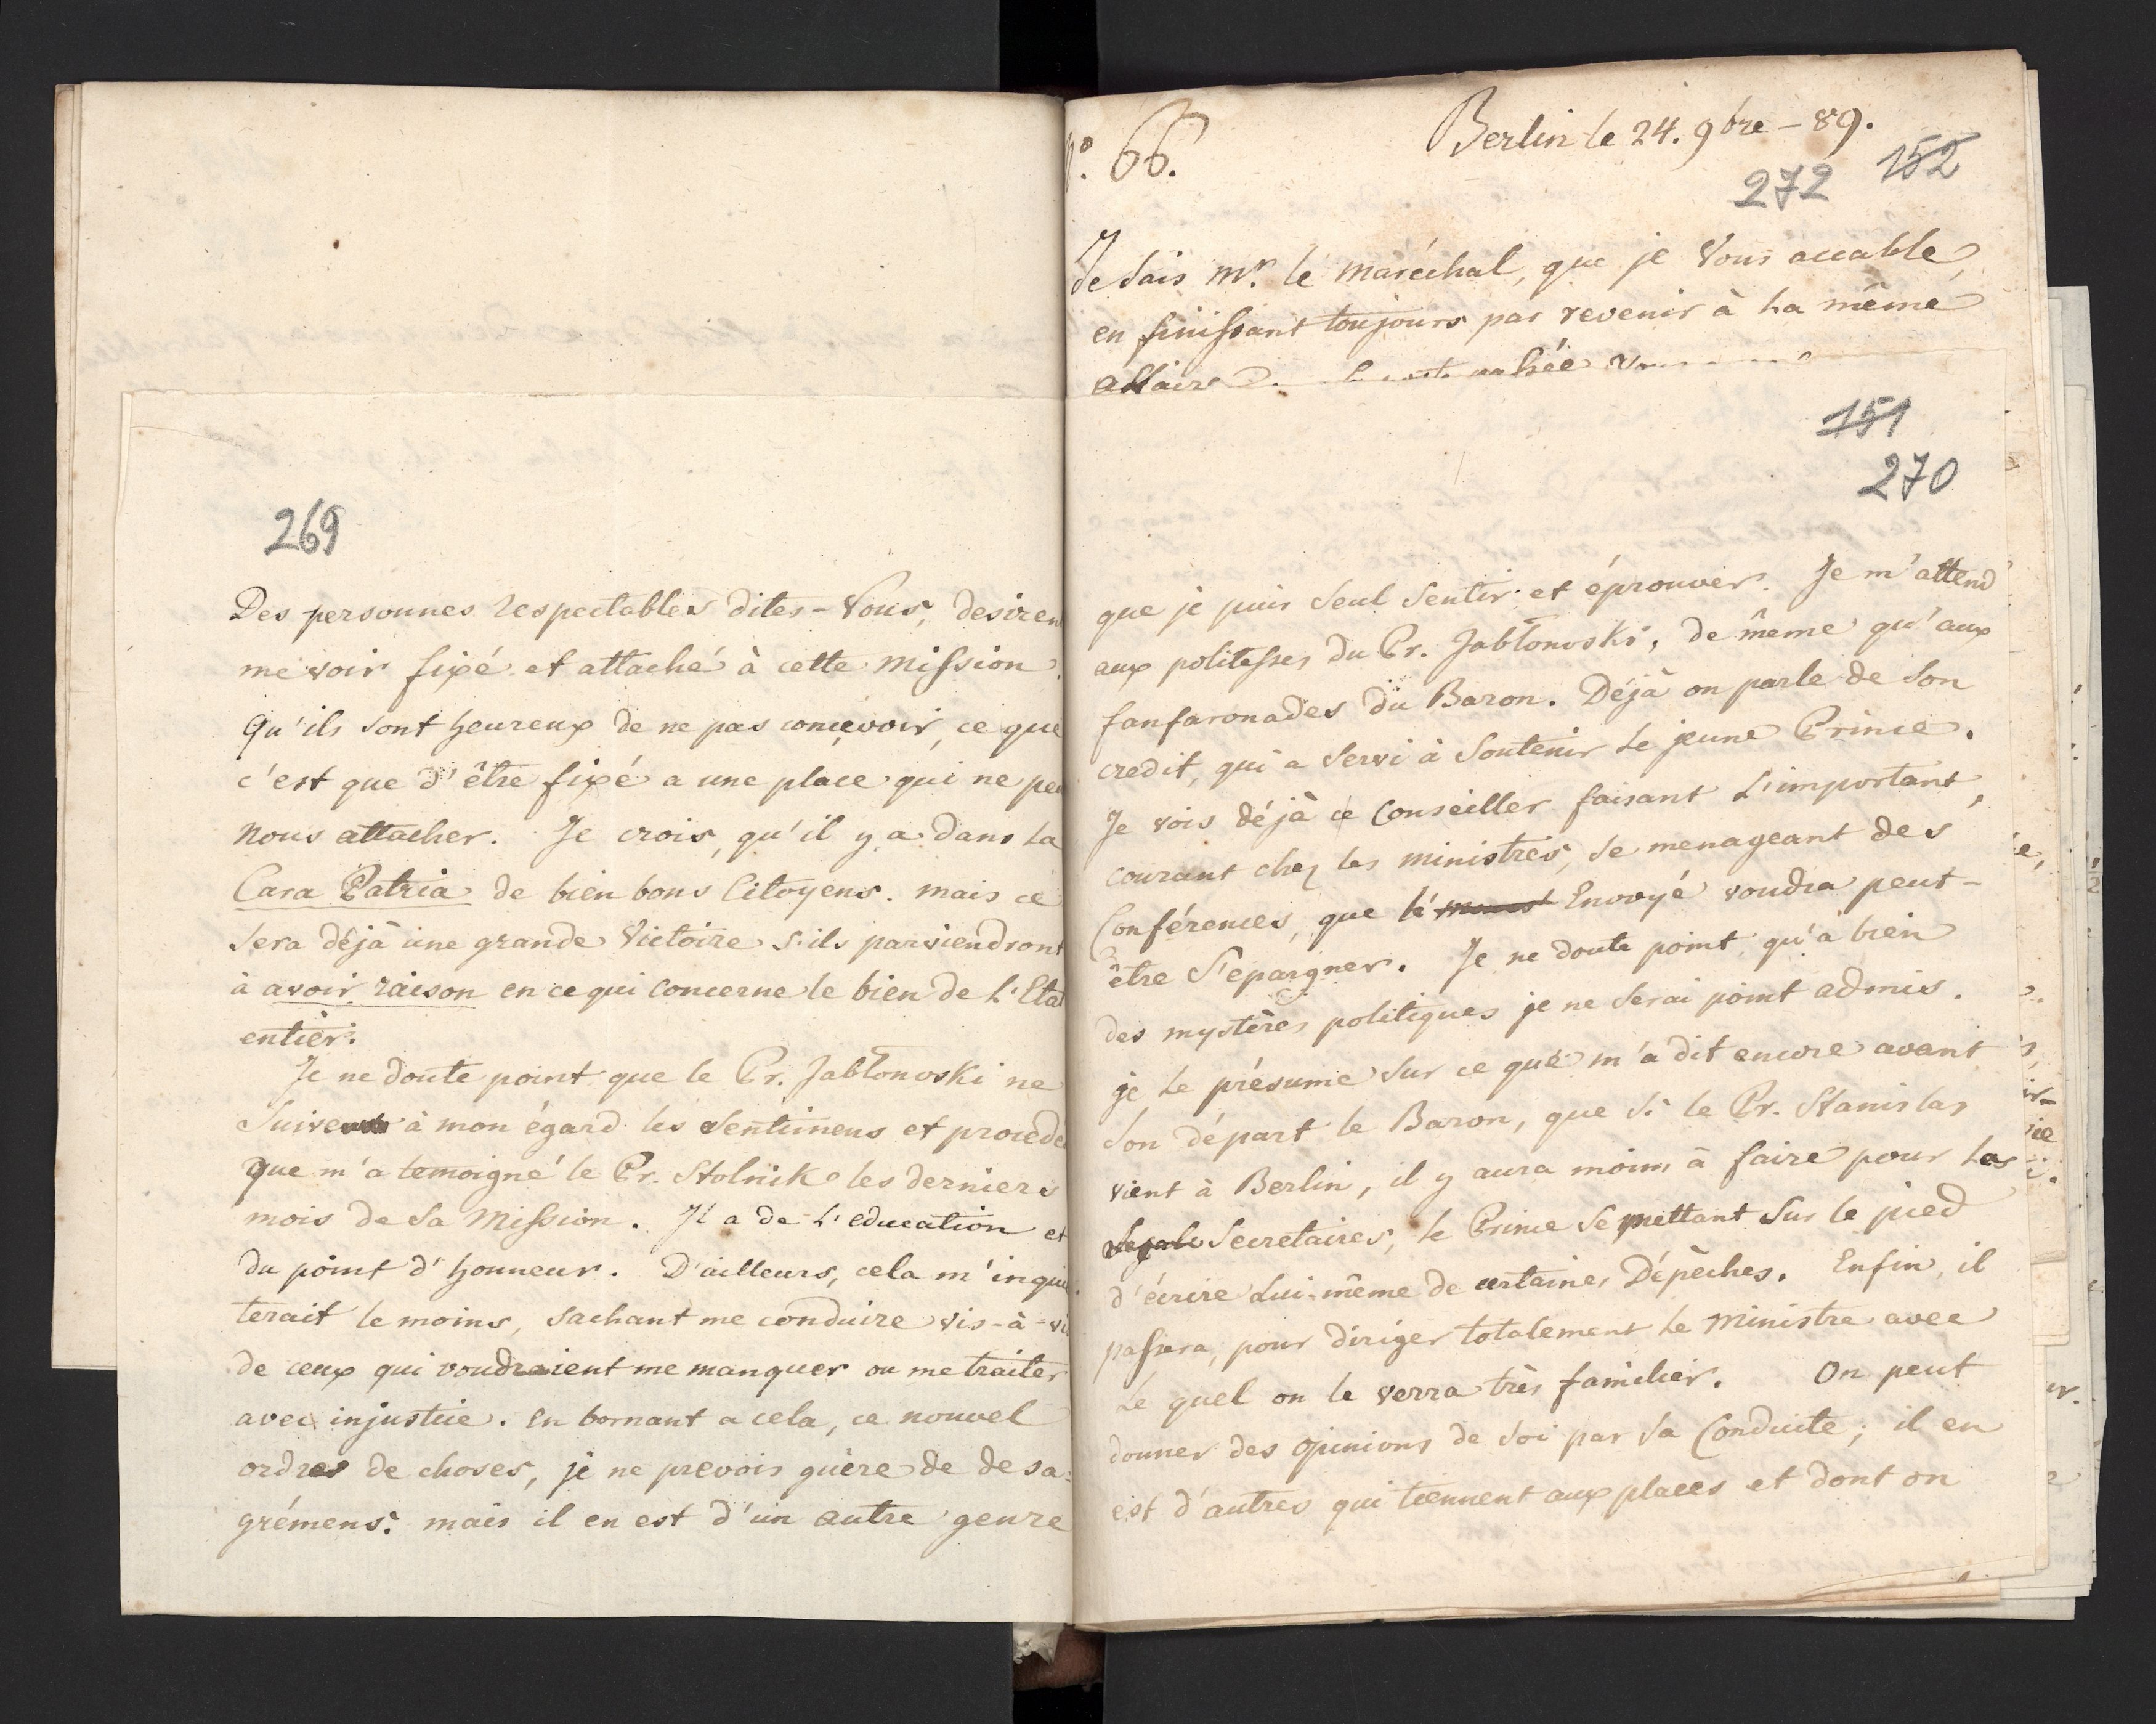 269
Des personnes respectables dites-Vous, desiren
me voir fixé et attaché à cette mission.
Qu'ils sont heureux de ne pas concevoir, ce que
c'est que d'être fixé a une place qui ne peu
nous attacher. Je crois, qu'il y a dans la
Cara Patria de bien bons Citoyens. mais ce
sera déjà une grande Victoire s'ils parviendront
à avoir raison en ce qui concerne le bien de L'Etat
entier.
Je ne doute point que le Pr. Jabłonoski ne
suive à mon égard les sentimens et procedé
que m'a temoigné le Pr. Stolnik les derniers
mois de sa Mission. Il a de L'education et
du point d'honneur. D'ailleurs, cela m'inquie
terait le moins, sachant me conduire vis-à-vis
de ceux qui voudraient me manquer ou me traiter
avec injustice. En bornant a cela, ce nouvel
ordres de choses, je ne prevois guère de desa=
grémens: mais il en est d'un autre genre
No. 66.
Berlin le 24. 9bre - 89.
272 152
Je sais Mr. le maréchal, que je Vous accable,
en finissant toujours par revenir à La même
affaire
151
270
que je puis seul sentir et éprouver. Je m'attend
aux politesses du Pr. Jabłonoski, de même qu'aux
fanfaronades du Baron. Déjà on parle de son
credit, qui a servi à soutenir Le jeune Prince.
Je vois déjà ce Conseiller faisant L'important,
courant chez les ministres, se menageant des
Conférences, que le Envoyé voudra peut-
être s'epargner. Je ne doute point qu'à bien
des mystères politiques je ne serai point admis.
je Le présume sur ce que m'a dit encore avant
son départ le Baron, que si le Pr. Stanislas
vient à Berlin, il y aura moins à faire pour Les
Secretaires, le Prince se mettant sur le pied
d'écrire Lui-même de certaines Dépêches. Enfin, il
passera, pour diriger totalement Le Ministre avec
Le quel on le verra très familier. On peut
donner des opinions de soi par sa Conduite; il en
est d'autres qui tiennent aux places et dont on